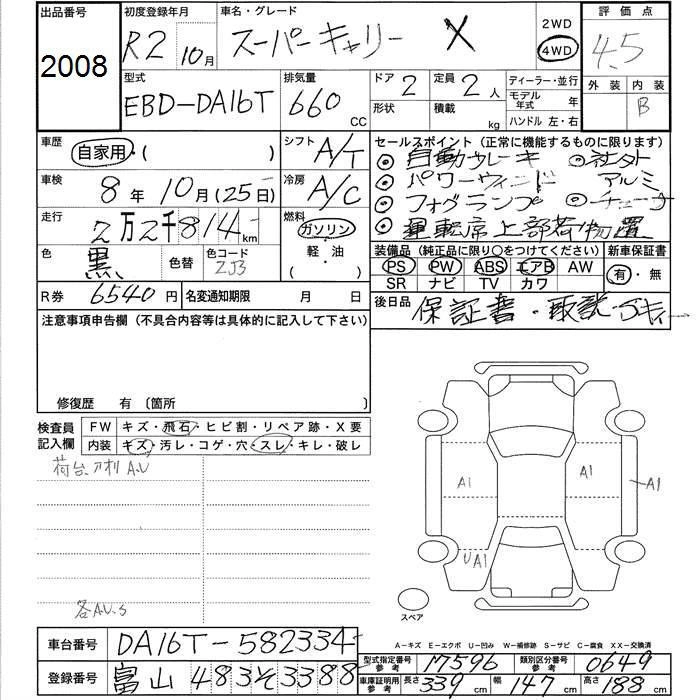 出品番号 初度登録年月 車名・グレード 2WD 評価点
2008 R2 10月 スーパーキャリー X 4WD 4.5
型式 排気量 ドア 2 定員 2人 ディーラー・並行 外装 内装
EBD-DA16T 660 CC 形状 積載 kg モデル年式 年 B
ハンドル 左・右
車歴 自家用・( ) シフト A/T セールスポイント(正常に機能するものに限ります)
◎ 自動ブレーキ
車検 8年10月(25日) 冷房 A/C ◎ パワーウィンド アルミ
◎ フォグランプ
走行 2万2千814km 燃料 ガソリン ◎ 運転席上部荷物置
軽・油
( )
色 黒 色替 色コード ZJ3 装備品(純正品に限り○をつけてください) 新車保証書
PS PW ABS エアB AW 有・無
SR ナビ TV カワ
R券 6540円 名変通知期限 月 日 後日品 保証書・取説・Sキィ
注意事項申告欄(不具合内容等は具体的に記入して下さい)
修復歴 有 〔箇所 〕
検査員記入欄 FW キズ・飛石・ヒビ割・リペア跡・X要
内装 キズ・汚レ・コゲ・穴・スレ・キレ・破レ
荷台 A.U
A1 A1 A1
UA1
各AU.S スペア
A-キズ E-エクボ U-凹み W-補修跡 S-サビ C-腐食 XX-交換済
車台番号 DA16T-582334
型式指定番号 参考 17596 類別区分番号 参考 0649
登録番号 富山 483そ3388 車庫証明用 参考 長さ 339cm 幅 147cm 高さ 188cm